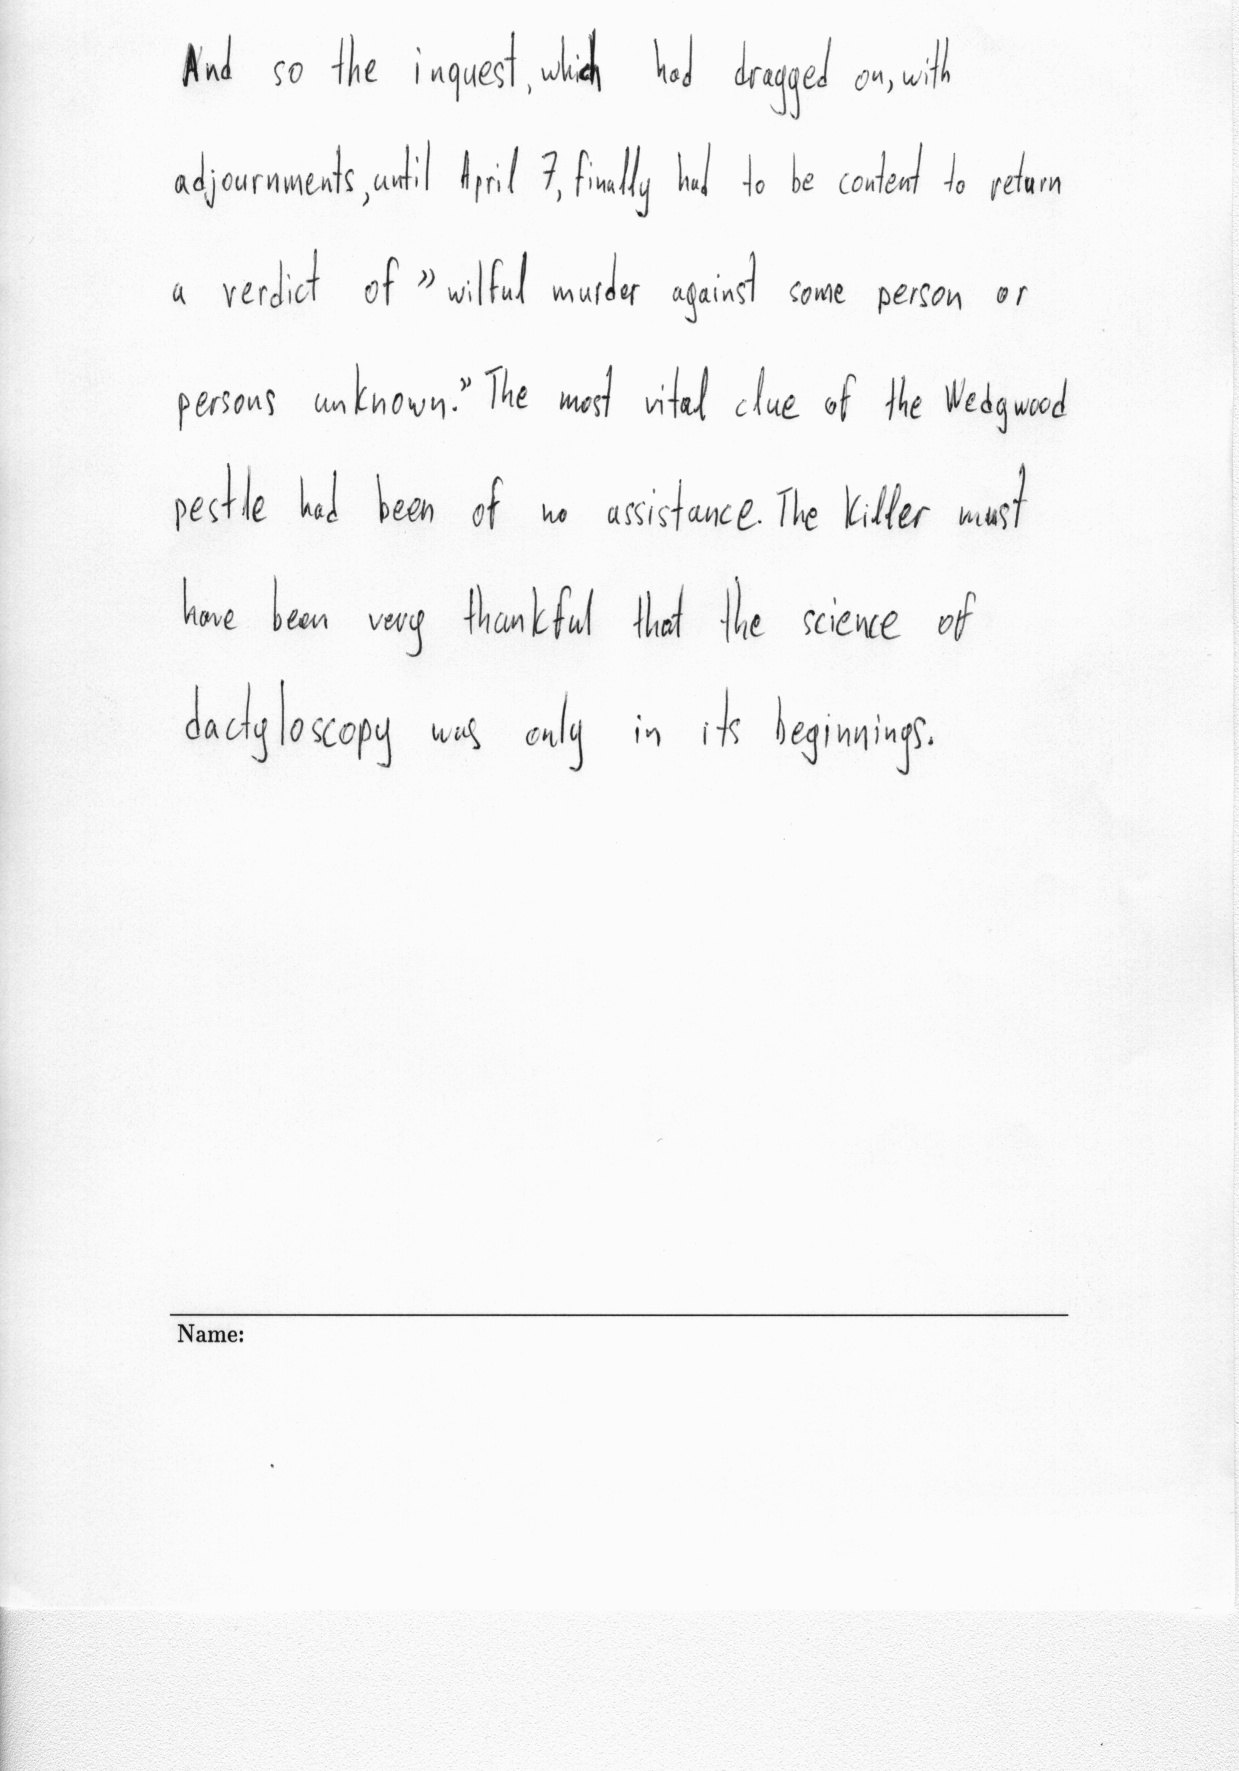 And so the inquest, which had dragged on, with
adjournments, until April 7, finally had to be content to return
a verdict of " wilful murder against some person or
persons unknown." The most vital clue of the Wedgwood
pestle had been of no assistance. The killer must
have been very thankful that the science of
dactyloscopy was only in its beginnings.
Name: